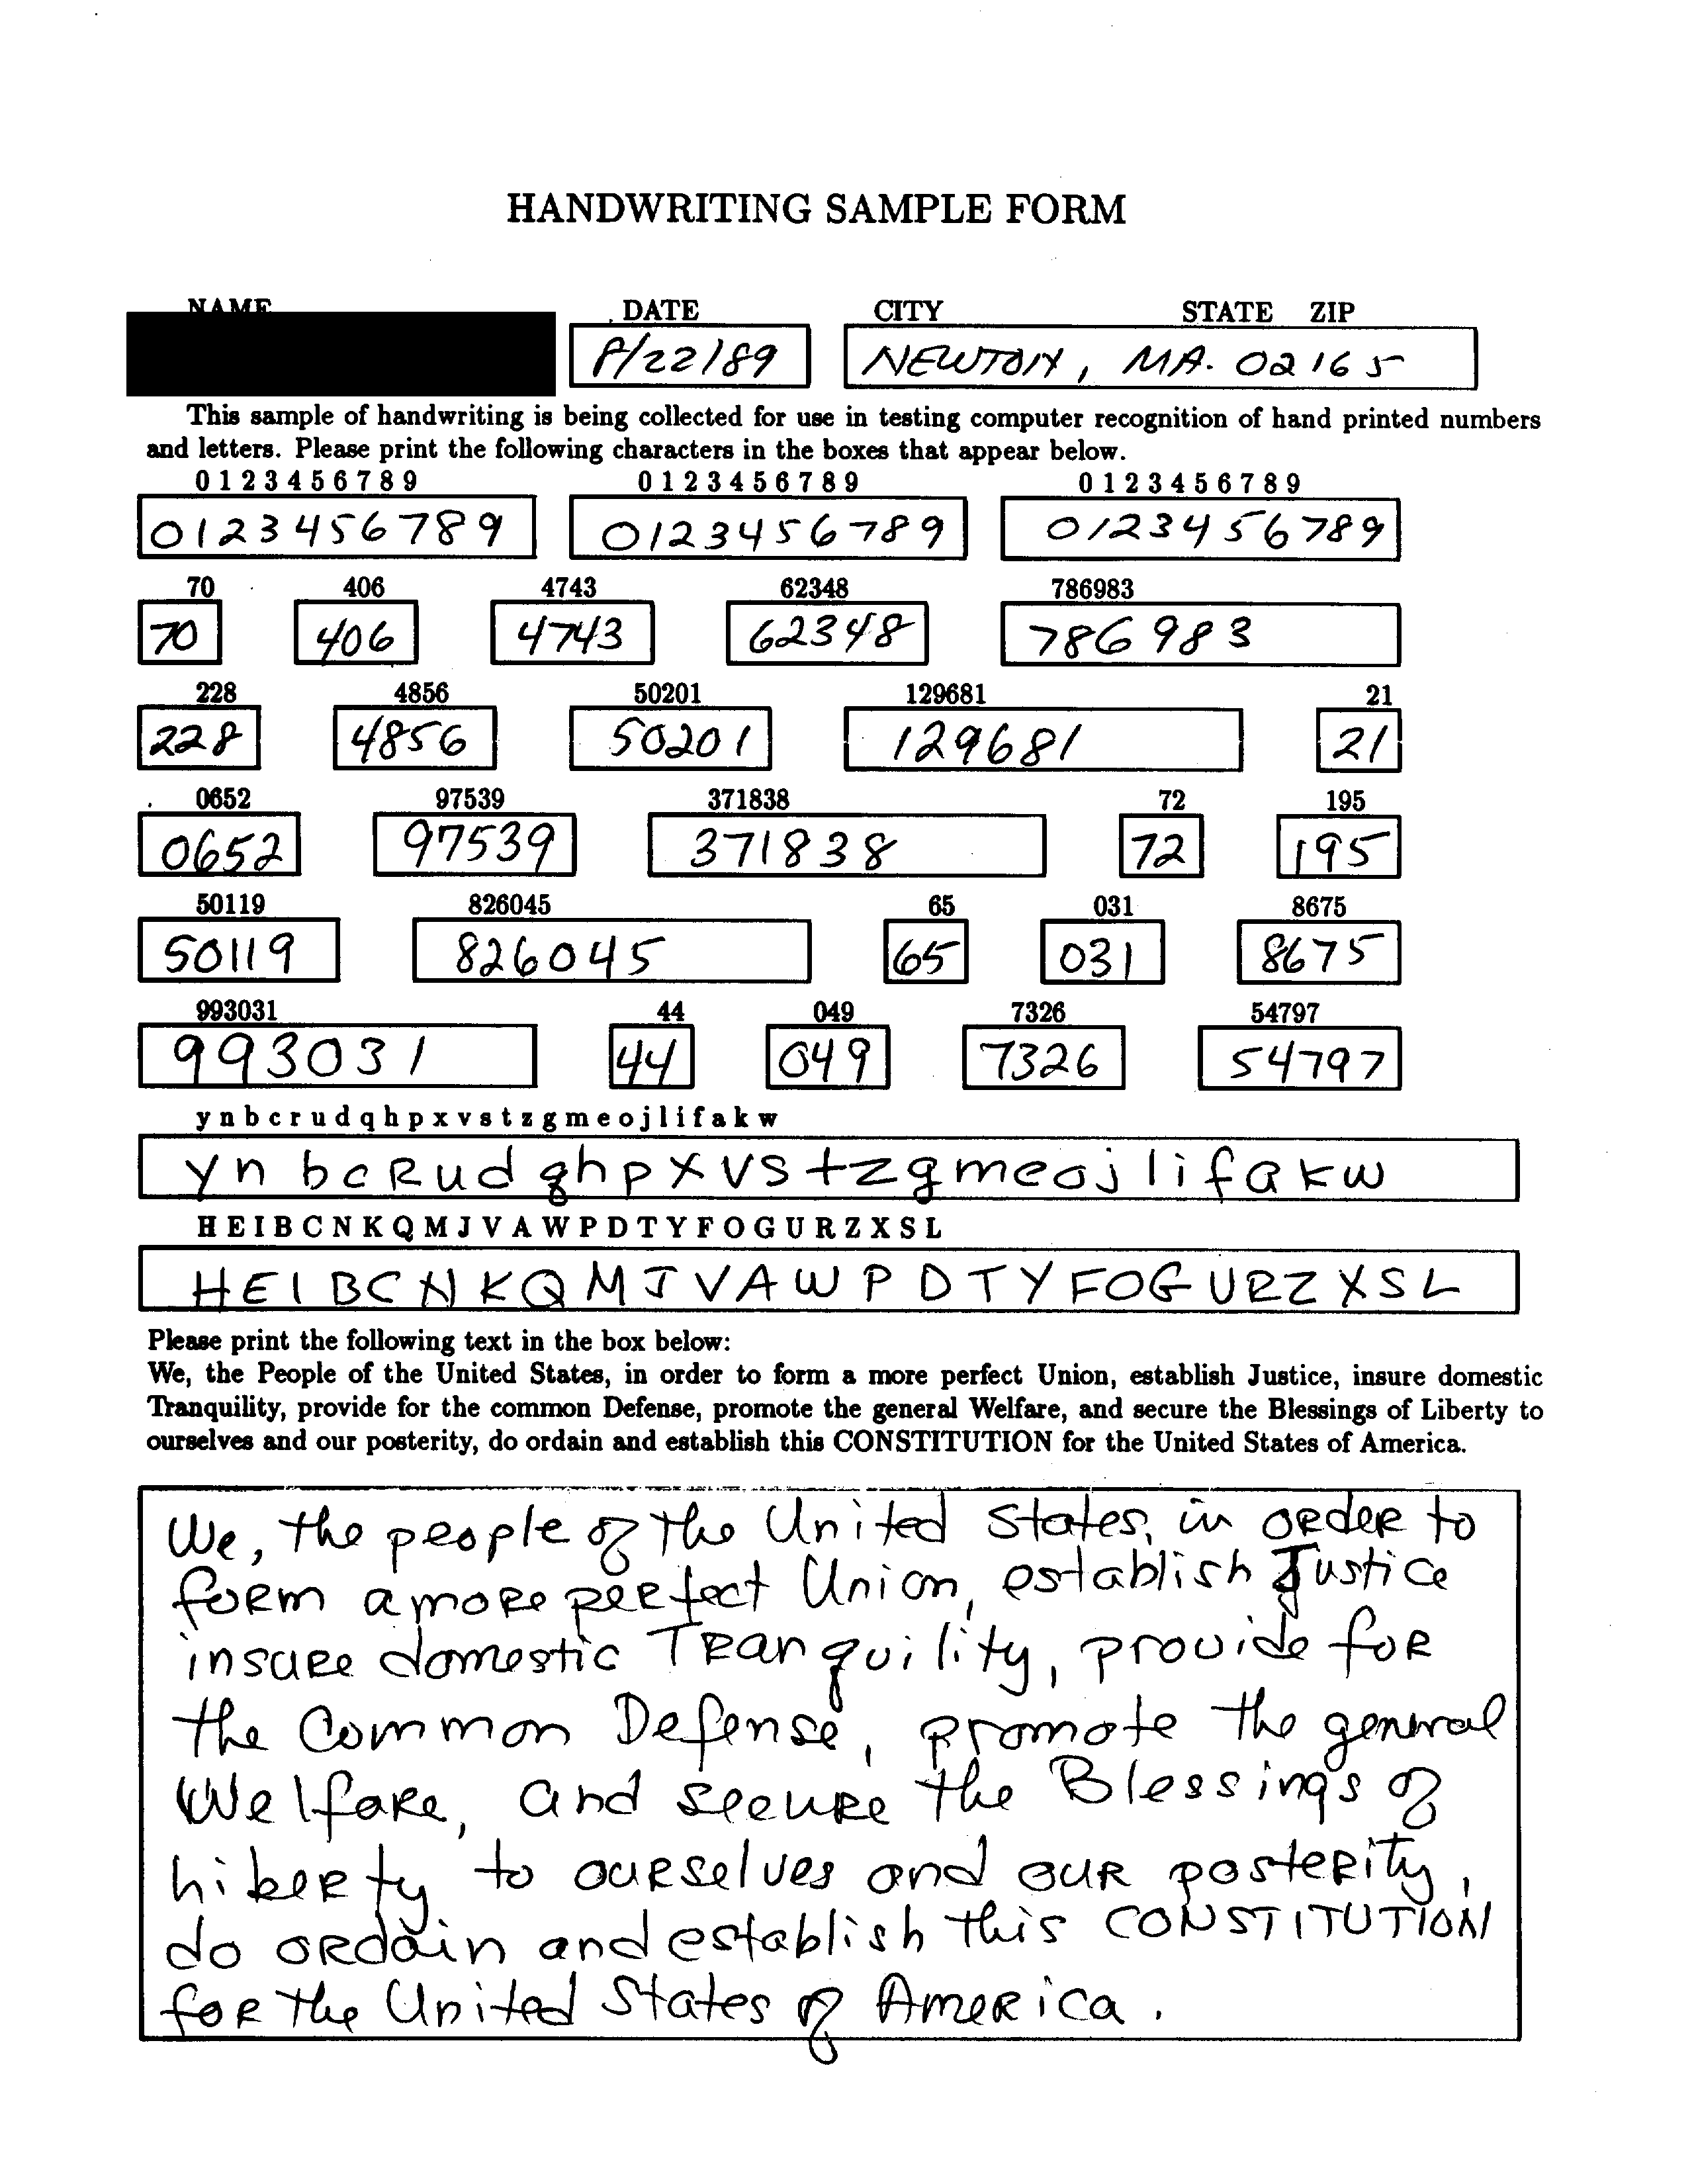 HANDWRITING SAMPLE FORM
NAME DATE CITY STATE ZIP
8/22/89 NEWTON, MA. 02165
This sample of handwriting is being collected for use in testing computer recognition of hand printed numbers
and letters. Please print the following characters in the boxes that appear below.
0 1 2 3 4 5 6 7 8 9 0 1 2 3 4 5 6 7 8 9 0 1 2 3 4 5 6 7 8 9
0123456789 0123456789 0123456789
70 406 4743 62348 786983
70 406 4743 62348 786983
228 4856 50201 129681 21
228 4856 50201 129681 21
0652 97539 371838 72 195
0652 97539 371838 72 195
50119 826045 65 031 8675
50119 826045 65 031 8675
993031 44 049 7326 54797
993031 44 049 7326 54797
y n b c r u d q h p x v s t z g m e o j l i f a k w
y n b c R u d q h p x v s t z g m e o j l i f a k w
H E I B C N K Q M J V A W P D T Y F O G U R Z X S L
H E I B C N K Q M J V A W P D T Y F O G U R Z X S L
Please print the following text in the box below:
We, the People of the United States, in order to form a more perfect Union, establish Justice, insure domestic
Tranquility, provide for the common Defense, promote the general Welfare, and secure the Blessings of Liberty to
ourselves and our posterity, do ordain and establish this CONSTITUTION for the United States of America.
We, the people of the United States, in oRdeR to
foRm a moRe peRfect Union, establish Justice
insuRe domestic TRanquility, pRovide foR
the Common Defense, pRomote the general
WelfaRe, and secuRe the Blessings of
LibeRty, to ouRselves and ouR posteRity,
do oRdain and establish this CONSTITUTION
foR the United States of AmeRica.